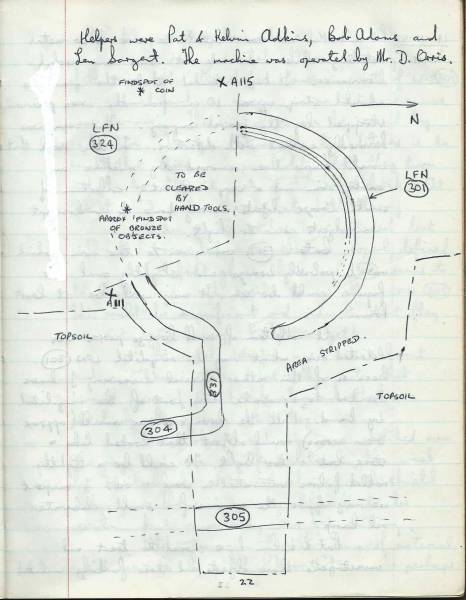 Helpers were Pat & Kelvin Adkins, Bob Adams and
Len Sargent. The machine was operated by Mr. D. Orris.
FINDSPOT OF
* COIN
X A115
N
LFN
324
TO BE
CLEARED
BY
HAND TOOLS.
LFN
301
*
APPROX FINDSPOT
OF BRONZE
OBJECTS.
X
A111
TOPSOIL
AREA STRIPPED.
TOPSOIL
304
305
22